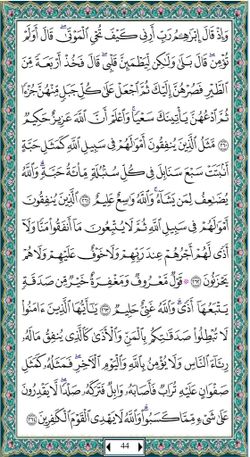 وَإِذْ قَالَ إِبْرَٰهِـۧمُ رَبِّ أَرِنِى كَيْفَ تُحْىِ ٱلْمَوْتَىٰ ۖ قَالَ أَوَلَمْ
تُؤْمِن ۖ قَالَ بَلَىٰ وَلَـٰكِن لِّيَطْمَئِنَّ قَلْبِى ۖ قَالَ فَخُذْ أَرْبَعَةً مِّنَ
ٱلطَّيْرِ فَصُرْهُنَّ إِلَيْكَ ثُمَّ ٱجْعَلْ عَلَىٰ كُلِّ جَبَلٍ مِّنْهُنَّ جُزْءًا
ثُمَّ ٱدْعُهُنَّ يَأْتِينَكَ سَعْيًا ۚ وَٱعْلَمْ أَنَّ ٱللَّهَ عَزِيزٌ حَكِيمٌ
﴿٢٦٠﴾ مَّثَلُ ٱلَّذِينَ يُنفِقُونَ أَمْوَٰلَهُمْ فِى سَبِيلِ ٱللَّهِ كَمَثَلِ حَبَّةٍ
أَنۢبَتَتْ سَبْعَ سَنَابِلَ فِى كُلِّ سُنۢبُلَةٍ مِّا۟ئَةُ حَبَّةٍ ۗ وَٱللَّهُ
يُضَـٰعِفُ لِمَن يَشَآءُ ۗ وَٱللَّهُ وَٰسِعٌ عَلِيمٌ ﴿٢٦١﴾ ٱلَّذِينَ يُنفِقُونَ
أَمْوَٰلَهُمْ فِى سَبِيلِ ٱللَّهِ ثُمَّ لَا يُتْبِعُونَ مَآ أَنفَقُوا۟ مَنًّا وَلَآ
أَذًى ۙ لَّهُمْ أَجْرُهُمْ عِندَ رَبِّهِمْ وَلَا خَوْفٌ عَلَيْهِمْ وَلَا هُمْ
يَحْزَنُونَ ﴿٢٦٢﴾ ۞ قَوْلٌ مَّعْرُوفٌ وَمَغْفِرَةٌ خَيْرٌ مِّن صَدَقَةٍ
يَتْبَعُهَآ أَذًى ۗ وَٱللَّهُ غَنِىٌّ حَلِيمٌ ﴿٢٦٣﴾ يَـٰٓأَيُّهَا ٱلَّذِينَ ءَامَنُوا۟
لَا تُبْطِلُوا۟ صَدَقَـٰتِكُم بِٱلْمَنِّ وَٱلْأَذَىٰ كَٱلَّذِى يُنفِقُ مَالَهُۥ
رِئَآءَ ٱلنَّاسِ وَلَا يُؤْمِنُ بِٱللَّهِ وَٱلْيَوْمِ ٱلْـَٔاخِرِ ۖ فَمَثَلُهُۥ كَمَثَلِ
صَفْوَانٍ عَلَيْهِ تُرَابٌ فَأَصَابَهُۥ وَابِلٌ فَتَرَكَهُۥ صَلْدًا ۖ لَّا يَقْدِرُونَ
عَلَىٰ شَىْءٍ مِّمَّا كَسَبُوا۟ ۗ وَٱللَّهُ لَا يَهْدِى ٱلْقَوْمَ ٱلْكَـٰفِرِينَ ﴿٢٦٤﴾
44